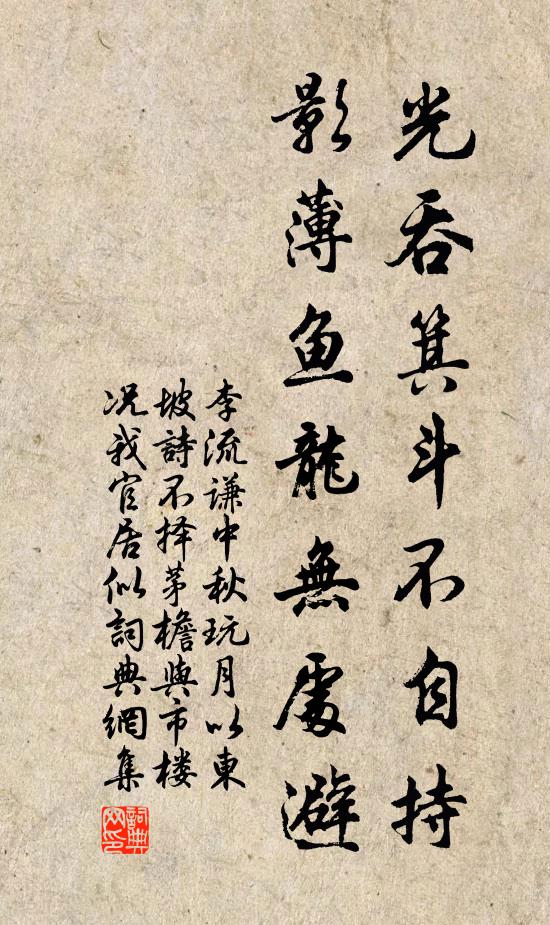 光吞箕斗不自持
影薄鱼龍無處避
李流谦中秋玩月以東
坡詩不择茅檐與市楼
况我官居似詞典網集
詞典
网印